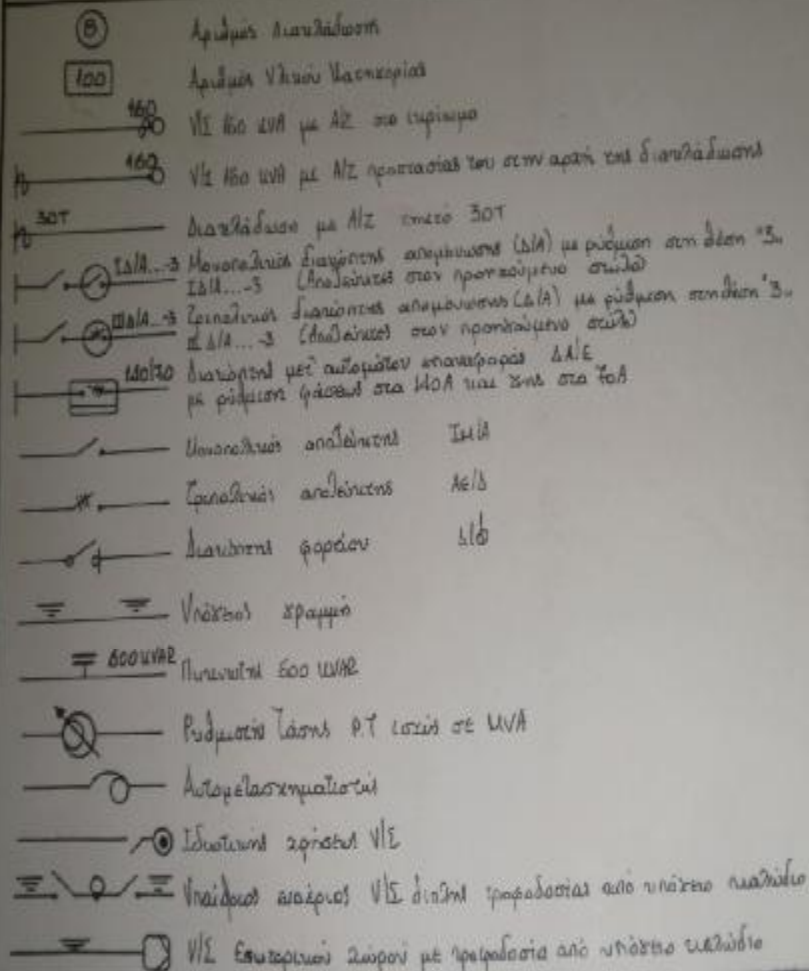 8 Αριθμός Διακλάδωση
100 Αριθμός Υλικού Κατηγορίας
160 Υ/Σ 160 KVA με Α/Ζ στο
160 Υ/Σ 160 KVA με Α/Ζ προστασίας του στην αρχή της διακλάδωσης
30T Διακλάδωση με Α/Ζ τηκτό 30T
ΙΔ/Α...-3 Μονοπολικός διακόπτης απομόνωσης (Δ/Α) με ρύθμιση στη θέση "3"
ΙΔ/Α...-3 (Αποζεύκτες στον προηγούμενο στύλο)
ΙΙΙΔ/Α...-3 Τριπολικός διακόπτης απομόνωσης (Δ/Α) με ρύθμιση στη θέση "3"
ΙΙΙΔ/Α...-3 (Αποζεύκτες στον προηγούμενο στύλο)
140/70 Διακόπτης μετ' αυτομάτου επαναφοράς ΔΑ/Ε
με ρύθμιση φάσεως στα 140Α και γης στα 70Α
Μονοπολικός αποζεύκτης
Τριπολικός αποζεύκτης ΑΕ/Δ
Διακόπτης φορτίου Δ/Φ
Υπόγειος γραμμή
600 KVAR Πυκνωτής 600 KVAR
Ρυθμιστής Τάσης Ρ.Τ ισχύς σε KVA
Αυτομετασχηματιστής
Ιδιωτικής χρήσεως Υ/Σ
Υπαίθριος εναέριος Υ/Σ διπλής τροφοδοσίας από υπόγειο καλώδιο
Υ/Σ Εσωτερικού χώρου με τροφοδοσία από υπόγειο καλώδιο